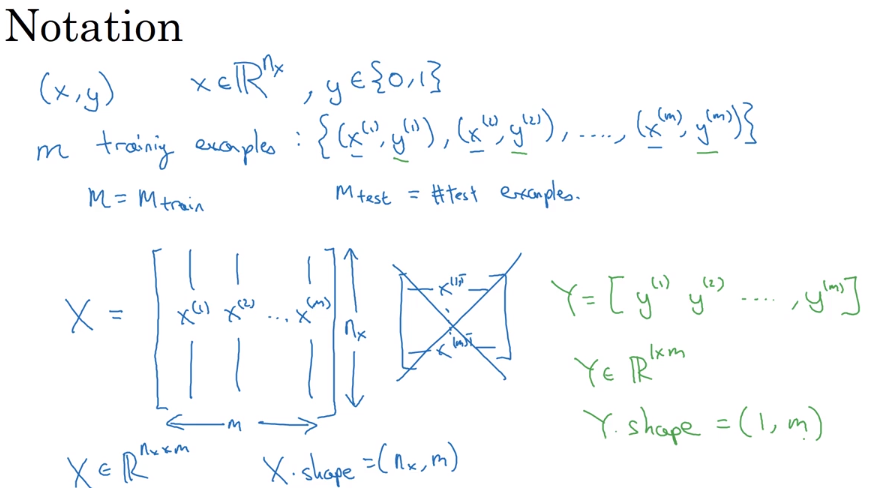 Notation
(x, y)   x ∈ ℝ^{n_x} , y ∈ {0,1}
m trainiy examples : {(x^{(1)}, y^{(1)}), (x^{(2)}, y^{(2)}), ...., (x^{(m)}, y^{(m)})}
M = M_{train}   M_{test} = #test examples.
X = [ x^{(1)} x^{(2)} ... x^{(m)} ] n_x
m
x^{(1)T}
x^{(m)T}
Y = [ y^{(1)} y^{(2)} .... , y^{(m)} ]
Y ∈ ℝ^{1×m}
Y.shape = (1, m)
X ∈ ℝ^{n_x×m}   X.shape = (n_x, m)